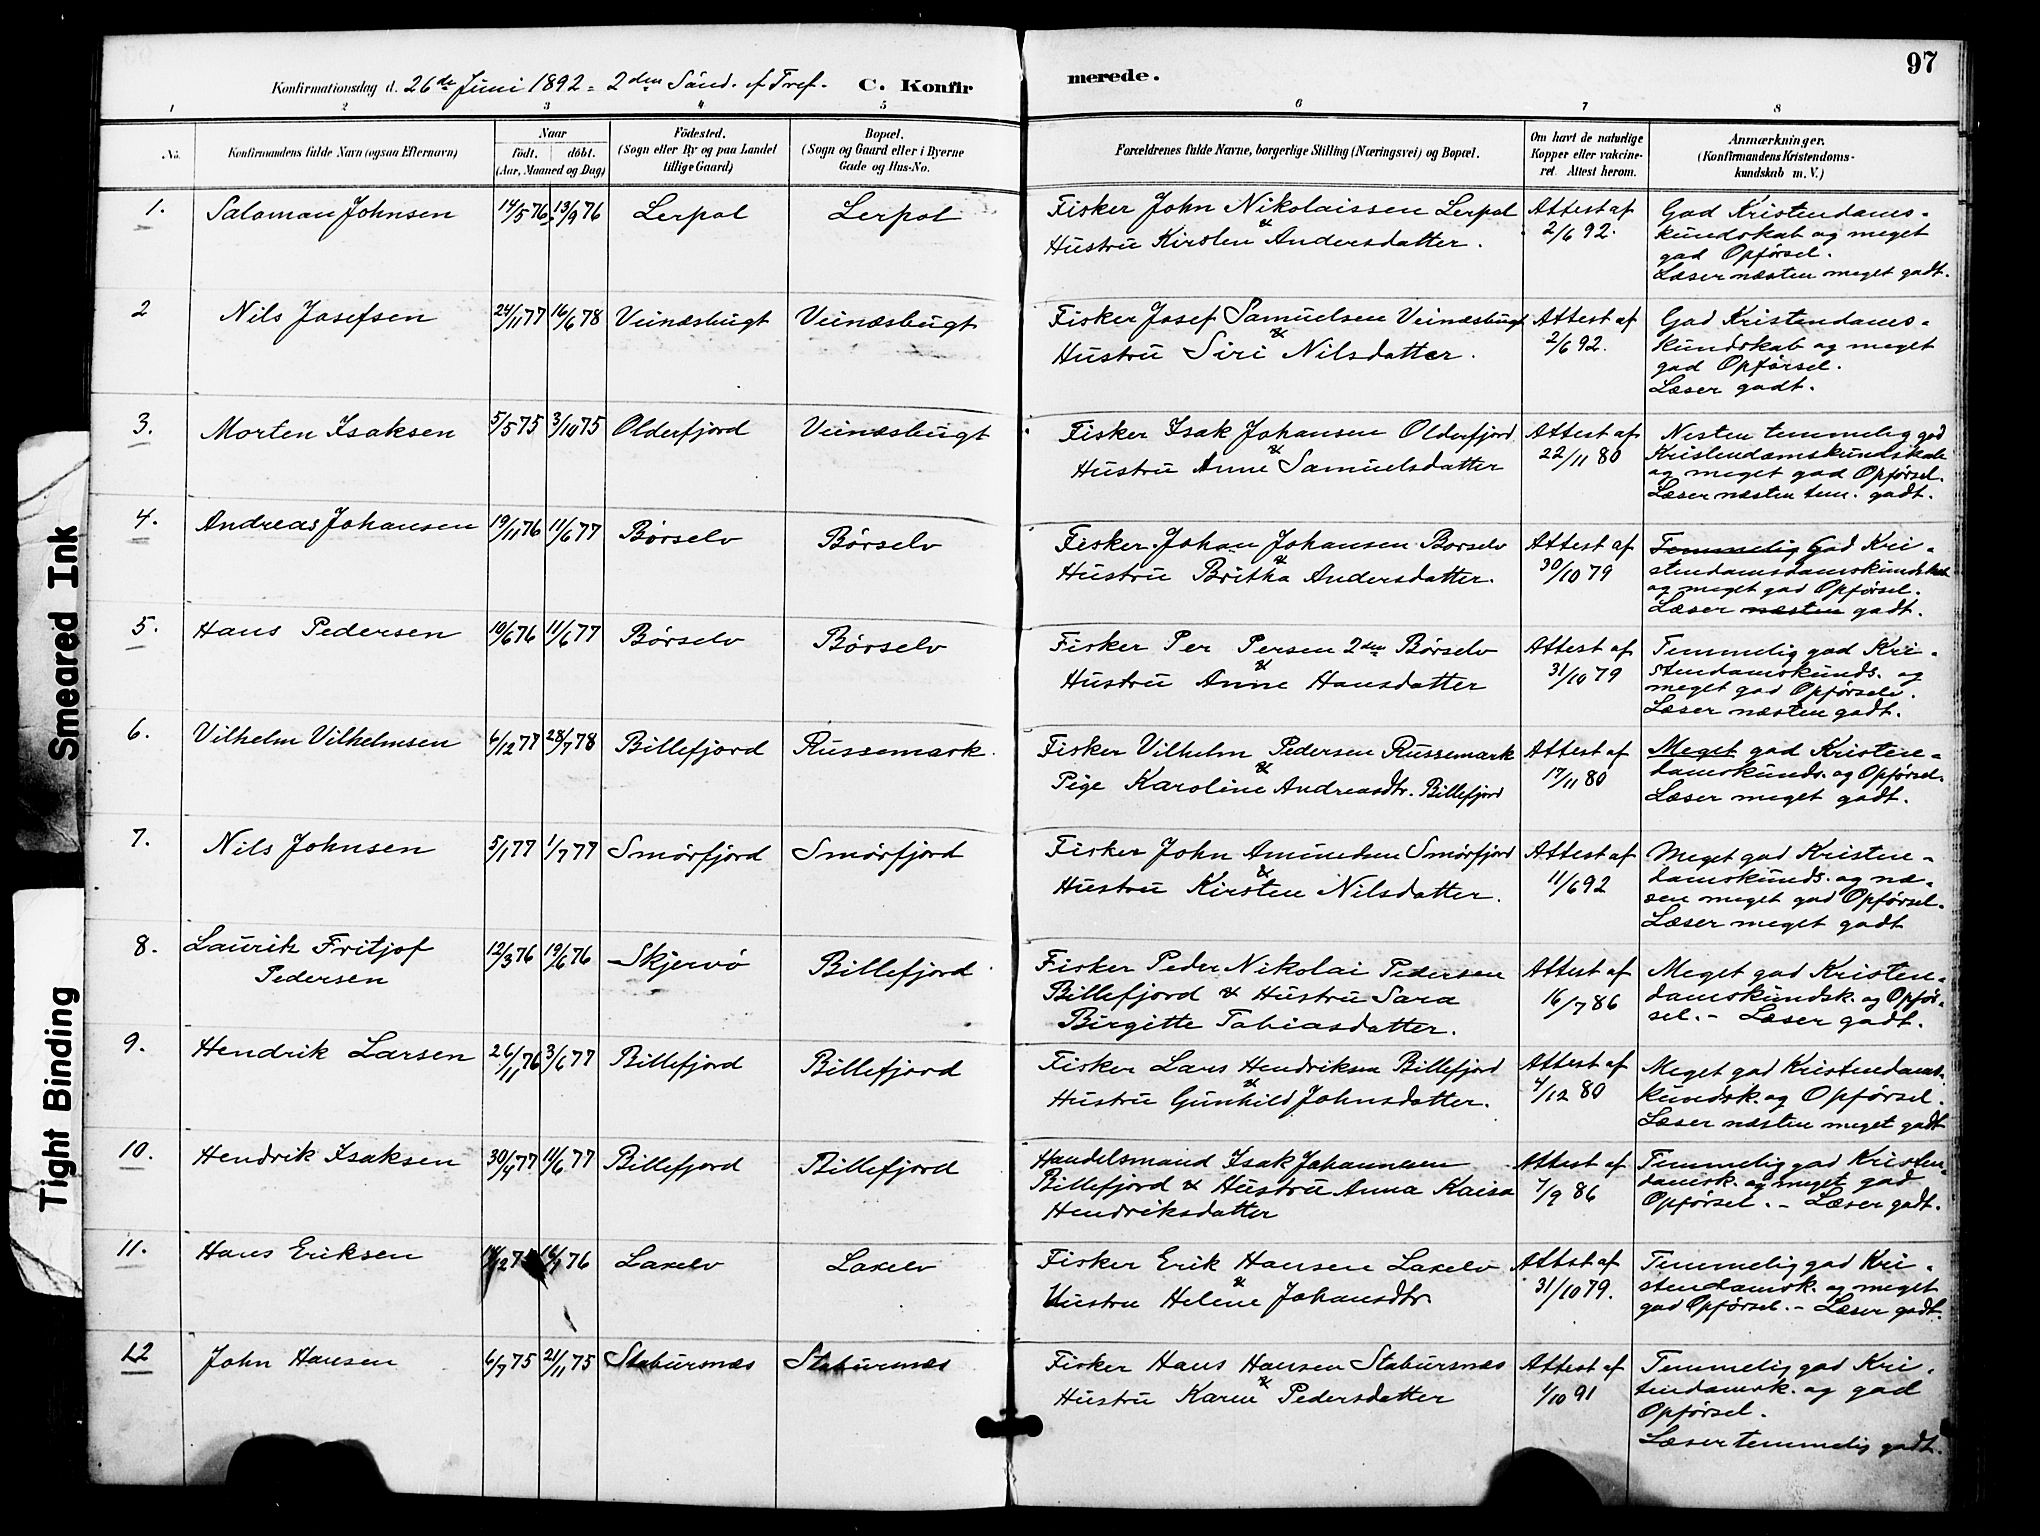 97
Konfirmationsdag d. 26de Juni 1892 = 2den Sönd. ef Tref. C. Konfirmerede.
1 2 3 4 5 6 7 8
No. Konfirmandens fulde Navn (ogsaa Efternavn) Naar födt. döbt. (Aar, Maaned og Dag) Födested. (Sogn eller By og paa Landet tillige Gaard) Bopæl. (Sogn og Gaard eller i Byerne Gade og Hus-No. Forældrenes fulde Navne, borgerlige Stilling (Næringsvei) og Bopæl. Om havt de naturlige Kopper eller vakcineret. Attest herom. Anmærkninger. (Konfirmandens Kristendomskundskab m. V.)
1. Salomon Johnsen 14/5 76 13/9 76 Lerpol Lerpol Fisker John Nikolaissen Lerpol Attest af God Kristendoms-
& Hustru Kirsten Andersdatter. 2/6 92. kundskab og meget
god Opførsel.
Læser næsten meget godt.
2 Nils Josefsen 24/11 77 16/6 78 Veinæsbugt Veinæsbugt Fisker Josef Samuelsen Veinæsbugt Attest af God Kristendoms-
& Hustru Siri Nilsdatter. 2/6 92. kundskab og meget
god Opførsel.
Læser godt.
3. Morten Isaksen 5/5 75 3/10 75 Olderfjord Veinæsbugt Fisker Isak Johansen Olderfjord Attest af Nesten temmelig god
& Hustru Anne Samuelsdatter 22/11 80 Kristendomskundskab
og meget god Opførsel.
Læser næsten tem. godt.
4. Andreas Johansen 19/11 76 11/6 77 Børselv Børselv Fisker Johan Johansen Børselv Attest af Temmelig God Kri-
& Hustru Britha Andersdatter. 30/10 79 stendomsdomskundskab
og meget god Opførsel.
Læser næsten godt.
5. Hans Pedersen 10/6 76 11/6 77 Børselv Børselv Fisker Per Persen 2den Børselv Attest af Temmelig god Kri-
& Hustru Anne Hansdatter 31/10 79 stendomskunds. og
meget god Opførsel.
Læser næsten godt.
6. Vilhelm Vilhelmsen 6/12 77 28/7 78 Billefjord Russemark. Fisker Vilhelm Pedersen Russemark Attest af Meget god Kristen-
& Pige Karoline Andreasdtr. Billefjord 17/11 80 domskunds. og Opførsel.
Læser meget godt.
7. Nils Johnsen 5/1 77 1/7 77 Smörfjord Smörfjord Fisker John Amundsen Smörfjord Attest af Meget god Kristen-
& Hustru Kirsten Nilsdatter. 11/6 92 domskunds. og næ-
sten meget god Opførsel.
Læser meget godt
8. Laurik Fritjof 12/3 76 19/6 76 Skjervö Billefjord Fisker Peder Nikolai Pedersen Attest af Meget god Kristen-
Pedersen Billefjord & Hustru Sara 16/7 86 domskundsk. og Opför-
Birgitte Tobiasdatter. sel. - Læser godt.
9. Hendrik Larsen 26/11 76 3/6 77 Billefjord Billefjord Fisker Lars Hendriksen Billefjord Attest af Meget god Kristendoms-
& Hustru Gunhild Johnsdatter. 4/12 80 kundsk. og Opførsel.
Læser næsten meget godt
10. Hendrik Isaksen 30/4 77 11/6 77 Billefjord Billefjord Handelsmand Isak Johannesen Attest af Temmelig god Kristen-
Billefjord & Hustru Anna Kaisa 7/9 86 domsk. og meget god
Hendriksdatter Opførsel. - Læser godt.
11. Hans Eriksen 76 Laxelv Laxelv Fisker Erik Hansen Laxelv Attest af Temmelig god Kri-
& Hustru Helene Johansdtr 31/10 79. stendomsk. og meget
god Opførsel. - Læser godt.
12 John Hansen 6/7 75 21/11 75 Stabursnæs Stabursnæs Fisker Hans Hansen Stabursnæs Attest af Temmelig god Kri-
& Hustru Karen Pedersdatter 1/10 91 tendomsk. og god
Opførsel.
Læser temmelig godt.
Smeared Ink
Tight Binding